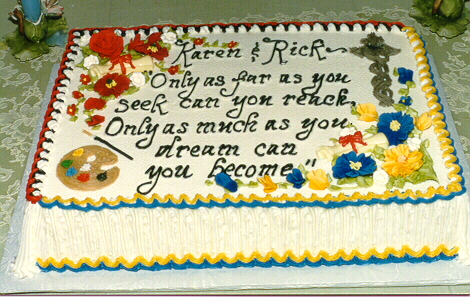 Karen & Rick
"Only as far as you
seek can you reach,
Only as much as you
dream can
you become."